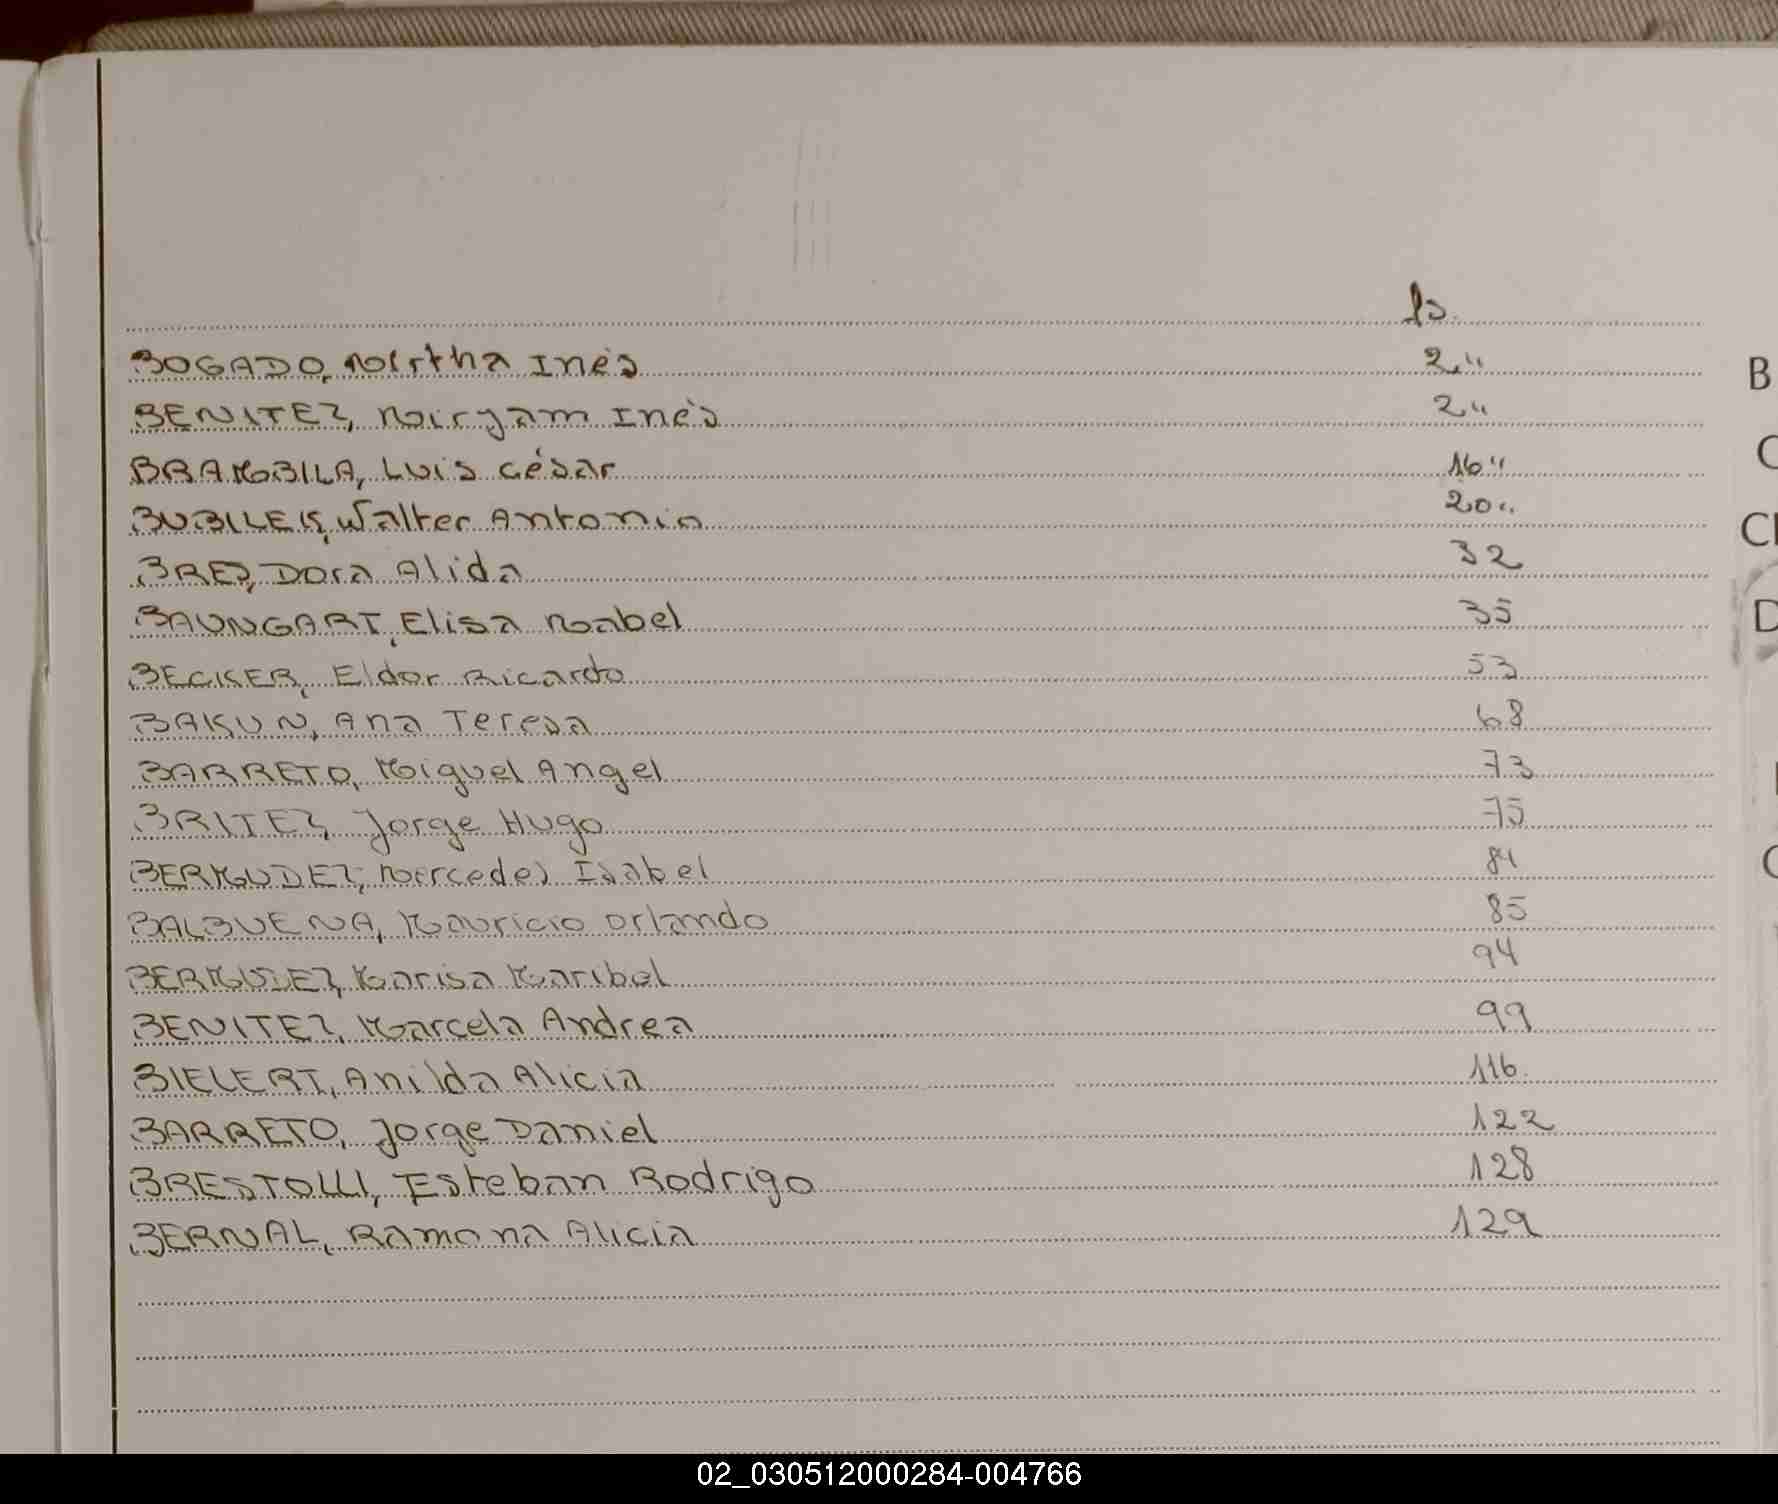 fs.
BOGADO, Mirtha Inés 2"
BENITEZ, Miryam Inés 2"
BRAMBILA, Luis César 16"
BUBILEK, Walter Antonio 20"
BREZ, Dora Alida 32
BAUNGART, Elisa Mabel 35
BECKER, Eldor Ricardo 53
BAKUN, Ana Teresa 68
BARRETO, Miguel Angel 73
BRITEZ, Jorge Hugo 75
BERMUDEZ, Mercedes Isabel 81
BALBUENA, Mauricio Orlando 85
BERMUDEZ, Marisa Maribel 94
BENITEZ, Marcela Andrea 99
BIELERT, Anilda Alicia 116
BARRETO, Jorge Daniel 122
BRESTOLLI, Esteban Rodrigo 128
BERNAL, Ramona Alicia 129
B
C
CH
D
02_030512000284-004766